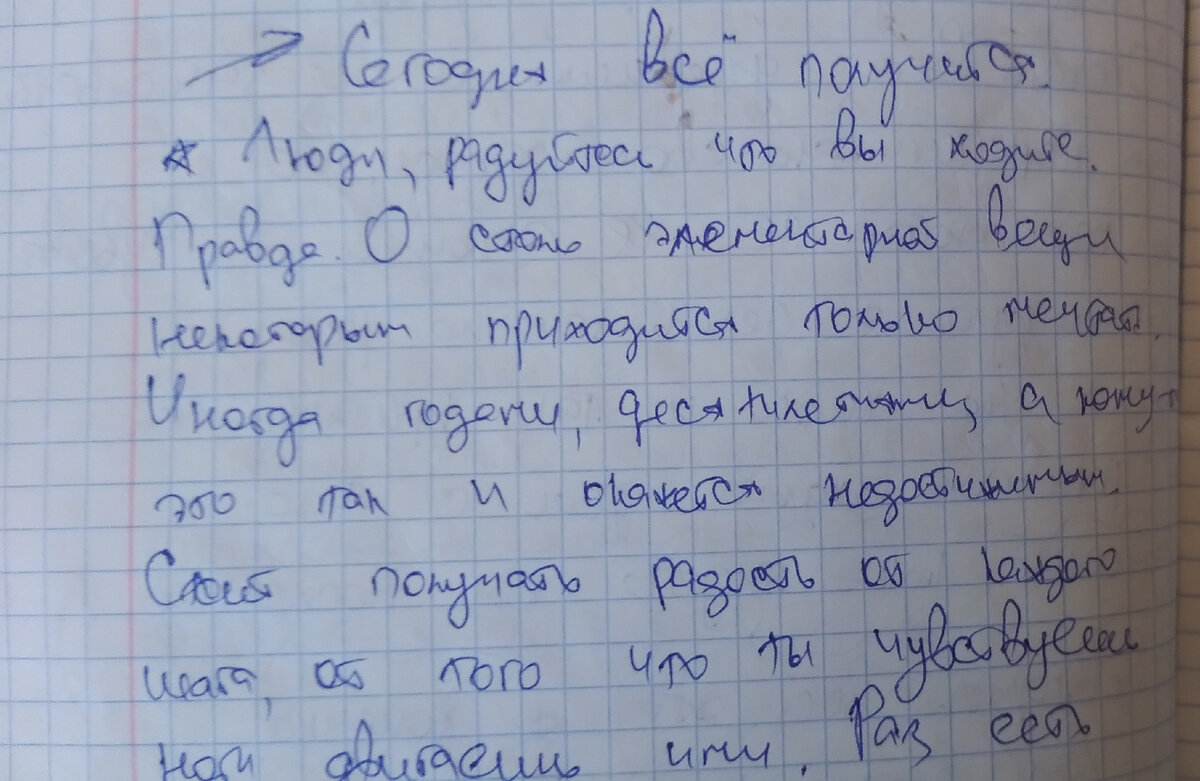 Сегодня всё получится.
Люди, радуйтесь что вы ходите.
Правда. О столь элементарной вещи
некоторым приходится только мечтать.
Иногда годами, десятилетиями, а кому-то
это так и окажется недостижимым.
Стоит получать радость от каждого
шага, от того что ты чувствуешь
ноги двигаешь ими. Раз есть